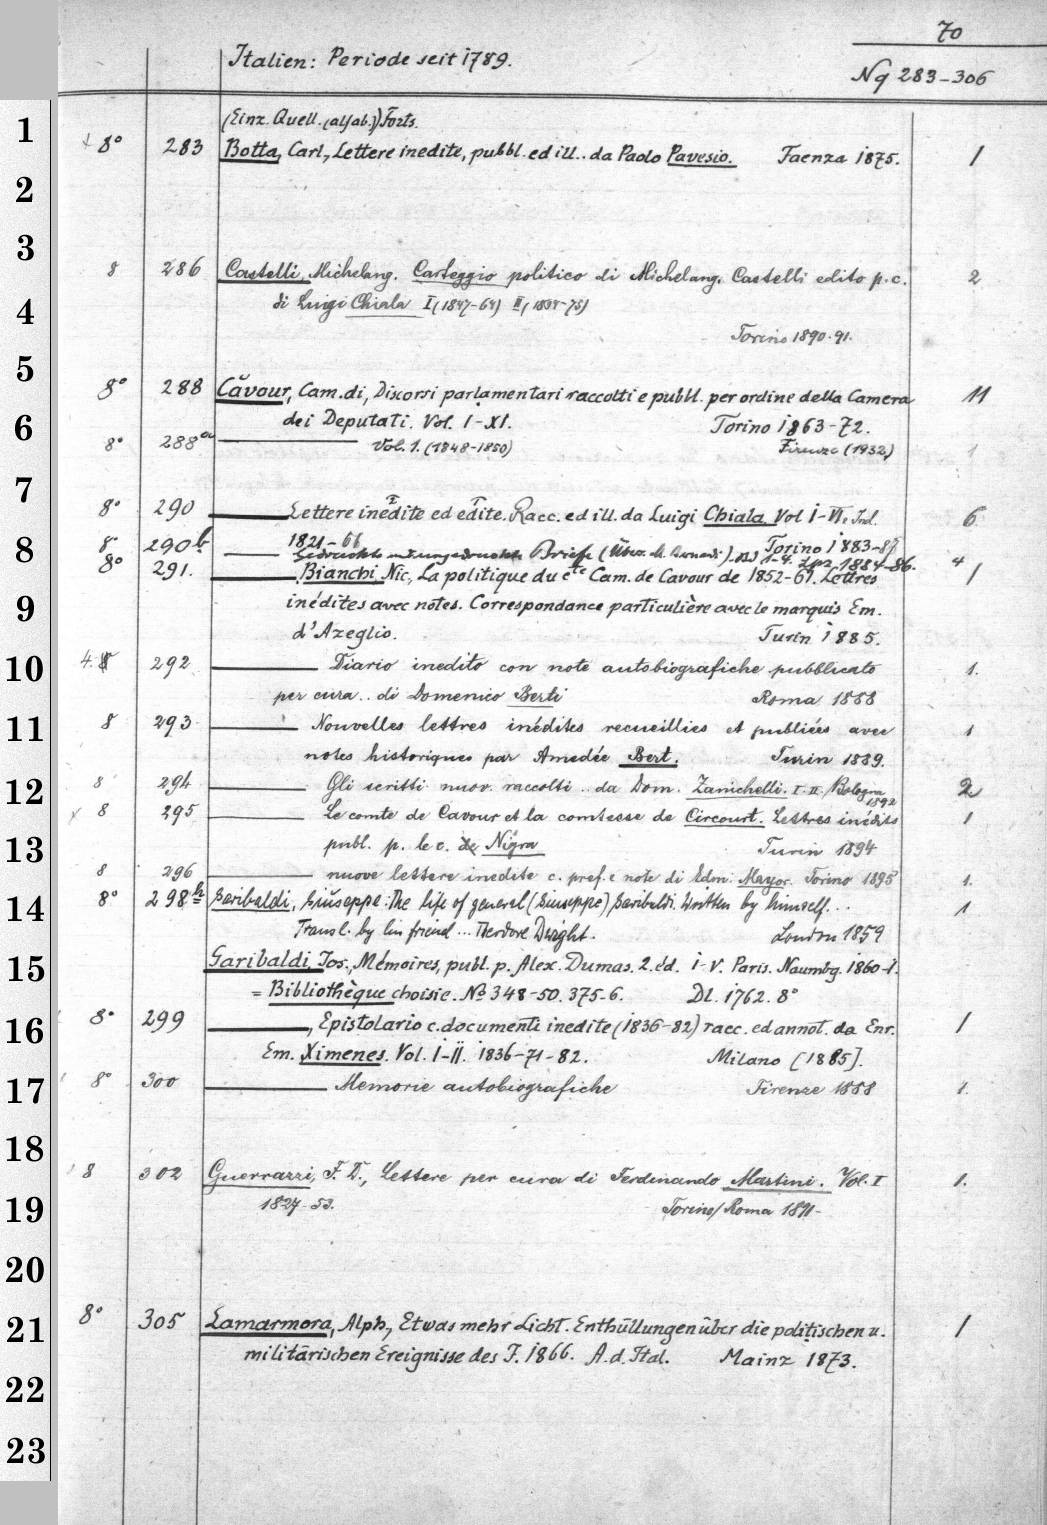 70
Italien: Periode seit 1789.
Nq 283-306
(Einz. Quell. (alfab.)) Forts.
1
8° 283 Botta, Carl, Lettere inedite, pubbl. ed ill. da Paolo Pavesio. Faenza 1875. 1
2
3
8 286 Castelli, Michelang. Carteggio politico di Michelang. Castelli edito p. c. 2
di Luigi Chiala I (1847-64) II (1864-75)
4
Torino 1890-91.
5
8° 288 Cavour, Cam. di, Discorsi parlamentari raccolti e pubbl. per ordine della Camera 11
dei Deputati. Vol. I-XI. Torino 1863-72.
6
8° 288a Vol. 1. (1848-1850) Firenze (1932) 1
7
8° 290 Lettere inedite ed edite. Racc. ed ill. da Luigi Chiala Vol I-VI, Ind. 6
1821-66 Torino 1883-87
8
8° 290b Gedruckte und ungedruckte Briefe (Übers. M. Bernardi). Bd 1-4. Lpz. 1884-86. 4
8° 291. Bianchi Nic, La politique du cte Cam. de Cavour de 1852-61. Lettres 1
9
inédites avec notes. Correspondance particulière avec le marquis Em.
d'Azeglio. Turin 1885.
10
292 Diario inedito con note autobiografiche pubblicato 1.
per cura .. di Domenico Berti Roma 1888
11
8 293 Nouvelles lettres inédites recueillies et publiées avec 1
notes historiques par Amedée Bert. Turin 1889.
12
8 294 Gli scritti nuov. raccolti .. da Dom. Zanichelli. I-II. Bologna 1892 2
8 295 Le comte de Cavour et la comtesse de Circourt. Lettres inédits 1
13
publ. p. le c. Nigra Turin 1894
8 296 nuove lettere inedite c. pref. e note di Edm. Mayor. Torino 1895 1.
14
8° 298h Garibaldi, Giuseppe: The life of general (Giuseppe) Garibaldi. Written by himself... 1
Transl. by his friend ... Theodore Dwight. London 1859
15
Garibaldi, Jos., Mémoires, publ. p. Alex. Dumas. 2. éd. I-V. Paris. Naumbg. 1860-1.
= Bibliothèque choisie. No 348-50. 375-6. Dl. 1762. 8°
16
8° 299 , Epistolario c. documenti inedite (1836-82) racc. ed annot. da Enr. 1
Em. Ximenes. Vol. I-II. 1836-71-82. Milano [1885].
17
8° 300 Memorie autobiografiche Firenze 1888 1.
18
8 302 Guerrazzi, F. D., Lettere per cura di Ferdinando Martini. Vol. I 1.
19
1827-53. Torino/Roma 1891-
20
21
8° 305 Lamarmora, Alph., Etwas mehr Licht. Enthüllungen über die politischen u. 1
militärischen Ereignisse des J. 1866. A. d. Ital. Mainz 1873.
22
23